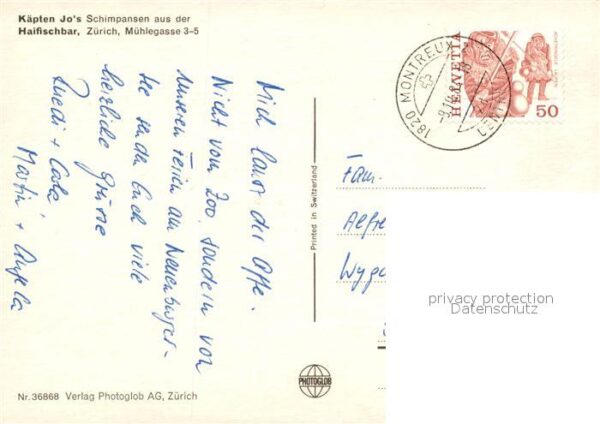 Käpten Jo's Schimpansen aus der
Haifischbar, Zürich, Mühlegasse 3–5
Mich laust der Affe.
Nicht vom Zoo sondern von
unseren Ferien am Neuenburger-
see senden Euch viele
herzliche Grüsse
Ruedi + Carla,
Martin + Angela
Printed in Switzerland
1820 MONTREUX
HELVETIA
50
Fam.
Alfre
Wyge
privacy protection
Datenschutz
PHOTOGLOB
Nr. 36868 Verlag Photoglob AG, Zürich